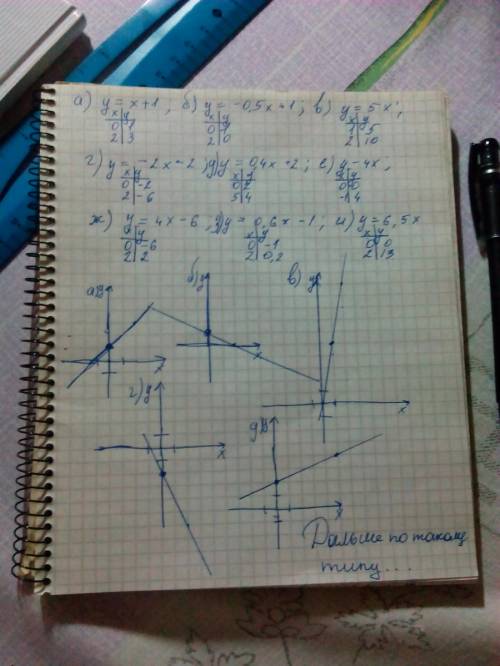 а) y = x+1 ; б) y = -0,5x+1 ; в) y = 5x ;
x y x y x y
0 1 0 1 1 5
2 3 2 0 2 10
г) y = -2x-2 ; д) y = 0,4x+2 ; е) y -4x ;
x y x y x y
0 -2 0 2 0 0
2 -6 5 4 -1 4
ж) y = 4x-6 , y = 0,6x-1 ; и) y = 6,5x
x y x y x y
0 -6 0 -1 0 0
2 2 2 0,2 2 13
а) y б) y в) y
x x x
г) y д) y
x x
Дальше по такому
типу...